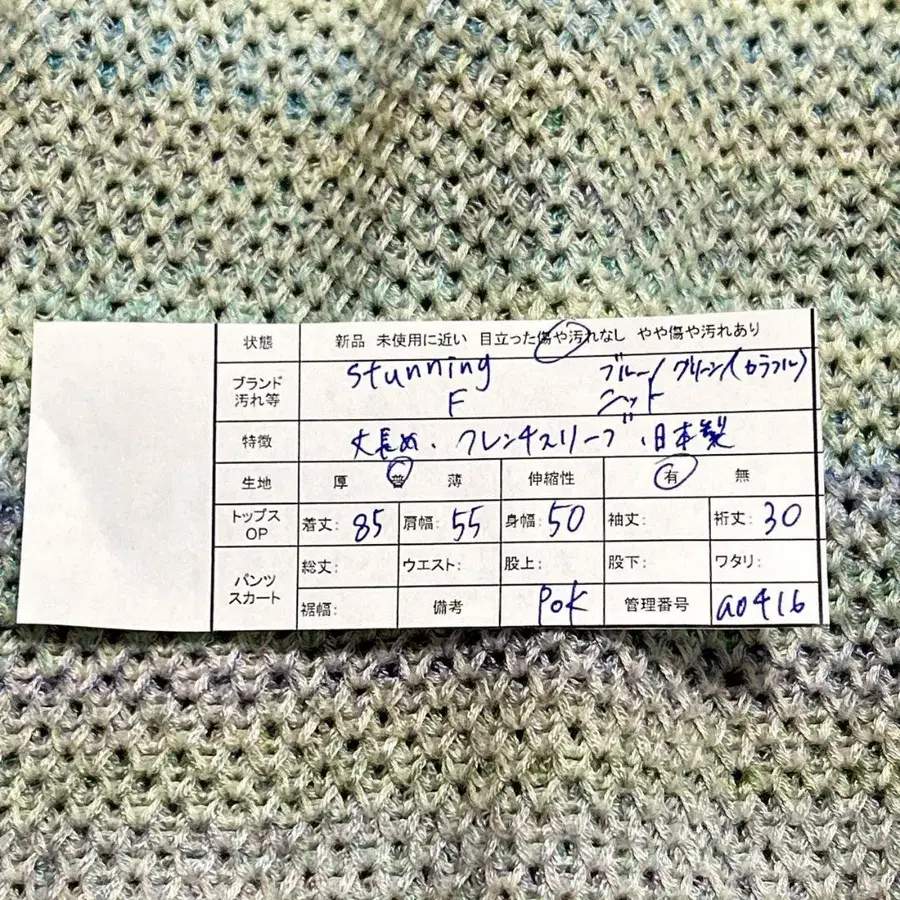 状態 新品 未使用に近い 目立った傷や汚れなし やや傷や汚れあり
ブランド 汚れ等 stunning ブルー/グリーン/(カラフル)
F ニット
特徴 丈長め、フレンチスリーブ、日本製
生地 厚 普 薄 伸縮性 有 無
トップス OP 着丈: 85 肩幅: 55 身幅: 50 袖丈: 裄丈: 30
パンツ スカート 総丈: ウエスト: 股上: 股下: ワタリ:
裾幅: 備考 pok 管理番号 a0416